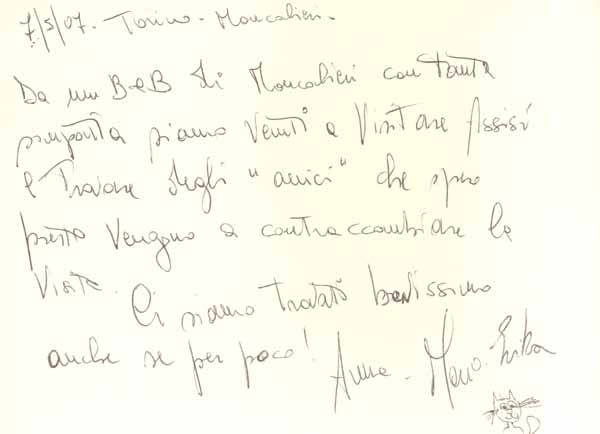 7/5/07. Torino - Moncalieri.
Da un B e B di Moncalieri con tanta
simpatia siamo venuti a visitare Assisi
e trovare degli "amici" che spero
presto vengano a contraccambiare la
visita.
Ci siamo trovati benissimo
anche se per poco! Anna -